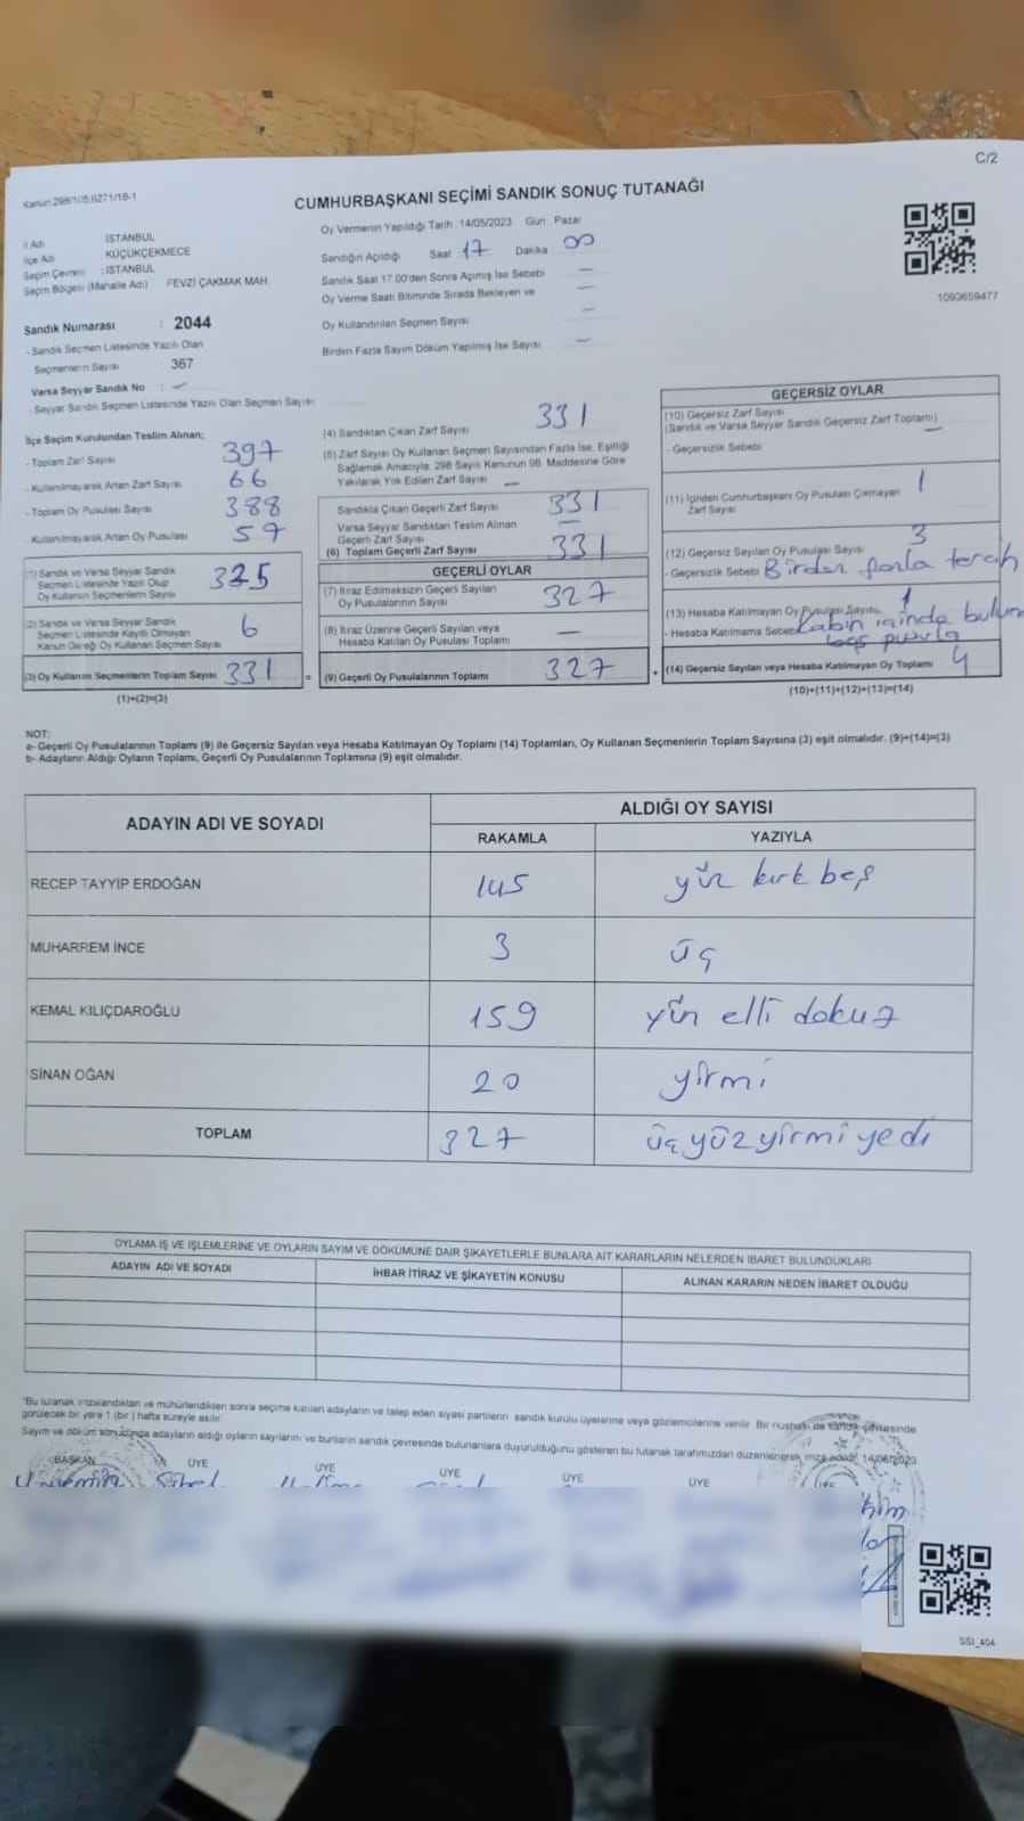 C/2
CUMHURBAŞKANI SEÇİMİ SANDIK SONUÇ TUTANAĞI
Oy Vermenin Yapıldığı Tarih :14/05/2023 Gün : Pazar
İl Adı : İSTANBUL
İlçe Adı : KÜÇÜKÇEKMECE
Seçim Çevresi : İSTANBUL
Seçim Bölgesi (Mahalle Adı) : FEVZİ ÇAKMAK MAH.
Sandığın Açıldığı Saat 17 Dakika 00
Sandık Saat 17.00'den Sonra Açılmış İse Sebebi —
Oy Verme Saati Bitiminde Sırada Bekleyen ve —
Oy Kullandırılan Seçmen Sayısı —
Birden Fazla Sayım Döküm Yapılmış İse Sayısı —
1093659477
Sandık Numarası : 2044
- Sandık Seçmen Listesinde Yazılı Olan
Seçmenlerin Sayısı 367
Varsa Seyyar Sandık No : —
- Seyyar Sandık Seçmen Listesinde Yazılı Olan Seçmen Sayısı
İlçe Seçim Kurulundan Teslim Alınan;
- Toplam Zarf Sayısı 397
- Kullanılmayarak Artan Zarf Sayısı 66
- Toplam Oy Pusulası Sayısı 388
- Kullanılmayarak Artan Oy Pusulası 57
(1) Sandık ve Varsa Seyyar Sandık
Seçmen Listesinde Yazılı Olup
Oy Kullanan Seçmenlerin Sayısı 325
(2) Sandık ve Varsa Seyyar Sandık
Seçmen Listesinde Kayıtlı Olmayan
Kanun Gereği Oy Kullanan Seçmen Sayısı 6
(3) Oy Kullanan Seçmenlerin Toplam Sayısı 331
(1)+(2)=(3)
(4) Sandıktan Çıkan Zarf Sayısı 331
(5) Zarf Sayısı Oy Kullanan Seçmen Sayısından Fazla İse, Eşitliği
Sağlamak Amacıyla, 298 Sayılı Kanunun 98. Maddesine Göre
Yakılarak Yok Edilen Zarf Sayısı —
Sandıkla Çıkan Geçerli Zarf Sayısı 331
Varsa Seyyar Sandıktan Teslim Alınan
Geçerli Zarf Sayısı —
(6) Toplam Geçerli Zarf Sayısı 331
GEÇERLİ OYLAR
(7) İtiraz Edilmeksizin Geçerli Sayılan
Oy Pusulalarının Sayısı 327
(8) İtiraz Üzerine Geçerli Sayılan veya
Hesaba Katılan Oy Pusulası Toplamı —
(9) Geçerli Oy Pusulalarının Toplamı 327
GEÇERSİZ OYLAR
(10) Geçersiz Zarf Sayısı
(Sandık ve Varsa Seyyar Sandık Geçersiz Zarf Toplamı) —
- Geçersizlik Sebebi
(11) İçinden Cumhurbaşkanı Oy Pusulası Çıkmayan
Zarf Sayısı 1
(12) Geçersiz Sayılan Oy Pusulası Sayısı 3
- Geçersizlik Sebebi Birden fazla tercih
(13) Hesaba Katılmayan Oy Pusulası Sayısı 1
- Hesaba Katılmama Sebebi Kabin içinde bulun
boş pusula
(14) Geçersiz Sayılan veya Hesaba Katılmayan Oy Toplamı 4
(10)+(11)+(12)+(13)=(14)
NOT:
a- Geçerli Oy Pusulalarının Toplamı (9) ile Geçersiz Sayılan veya Hesaba Katılmayan Oy Toplamı (14) Toplamları, Oy Kullanan Seçmenlerin Toplam Sayısına (3) eşit olmalıdır. (9)+(14)=(3)
b- Adayların Aldığı Oyların Toplamı, Geçerli Oy Pusulalarının Toplamına (9) eşit olmalıdır.
ADAYIN ADI VE SOYADI
ALDIĞI OY SAYISI
RAKAMLA YAZIYLA
RECEP TAYYİP ERDOĞAN 145 yüz kırk beş
MUHARREM İNCE 3 üç
KEMAL KILIÇDAROĞLU 159 yüz elli dokuz
SİNAN OĞAN 20 yirmi
TOPLAM 327 üçyüzyirmiyedi
OYLAMA İŞ VE İŞLEMLERİNE VE OYLARIN SAYIM VE DÖKÜMÜNE DAİR ŞİKAYETLERLE BUNLARA AİT KARARLARIN NELERDEN İBARET BULUNDUKLARI
ADAYIN ADI VE SOYADI İHBAR İTİRAZ VE ŞİKAYETİN KONUSU ALINAN KARARIN NEDEN İBARET OLDUĞU
*Bu tutanak imzalandıktan ve mühürlendikten sonra seçime katılan adayların ve talep eden siyasi partilerin sandık kurulu üyelerine veya gözlemcilerine verilir. Bir nüshası da sandık çevresinde
görülecek bir yere 1 (bir) hafta süreyle asılır.
Sayım ve döküm sonucunda adayların aldığı oyların sayılarını ve bunların sandık çevresinde bulunanlara duyurulduğunu gösteren bu tutanak tarafımızdan düzenlenerek imza edildi.
BAŞKAN ÜYE ÜYE ÜYE ÜYE ÜYE ÜYE
SSI_404